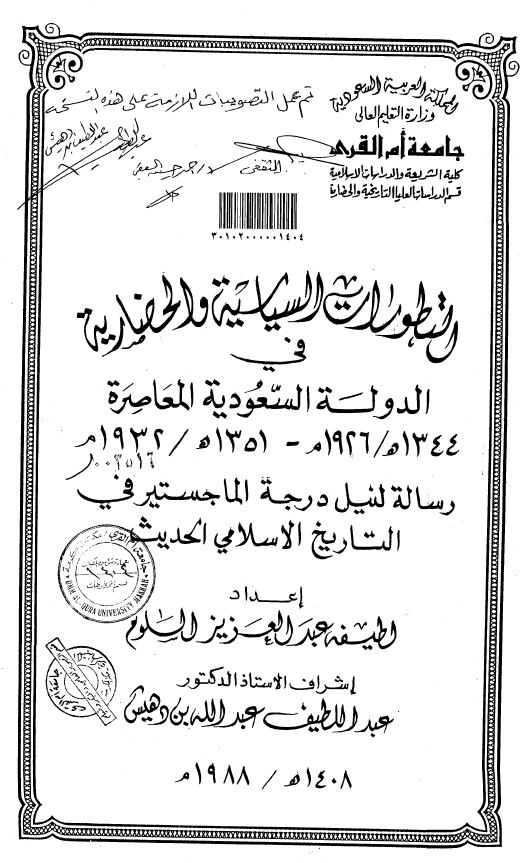 المملكة العربية السعودية
وزارة التعليم العالي
جامعة أم القرى
كلية الشريعة والدراسات الاسلامية
قسم الدراسات العليا التاريخية والحضارية
تم عمل التصويبات اللازمة على هذه النسخة
عبداللطيف بن دهيش
الثقفي
٣٠١٠٢٠٠٠٠٠١٤٠٤
التطورات السياسية والحضارية
في
الدولة السعودية المعاصرة
١٣٤٤ه/١٩٢٦م - ١٣٥١ه/١٩٣٢م
رسالة لنيل درجة الماجستير في
التاريخ الاسلامي الحديث
UMM AL QURA UNIVERSITY MAKKAH
إعداد
لطيفه عبد العزيز السلوم
إشراف الاستاذ الدكتور
عبد اللطيف عبد الله بن دهيش
١٤٠٨ه / ١٩٨٨م